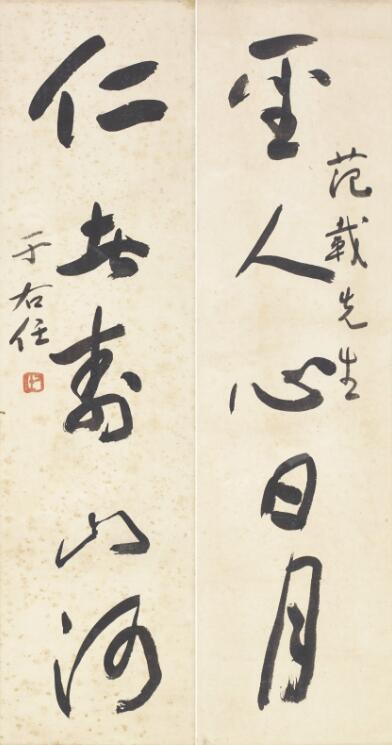 范載先生
聖人心日月
仁者壽山河
于右任